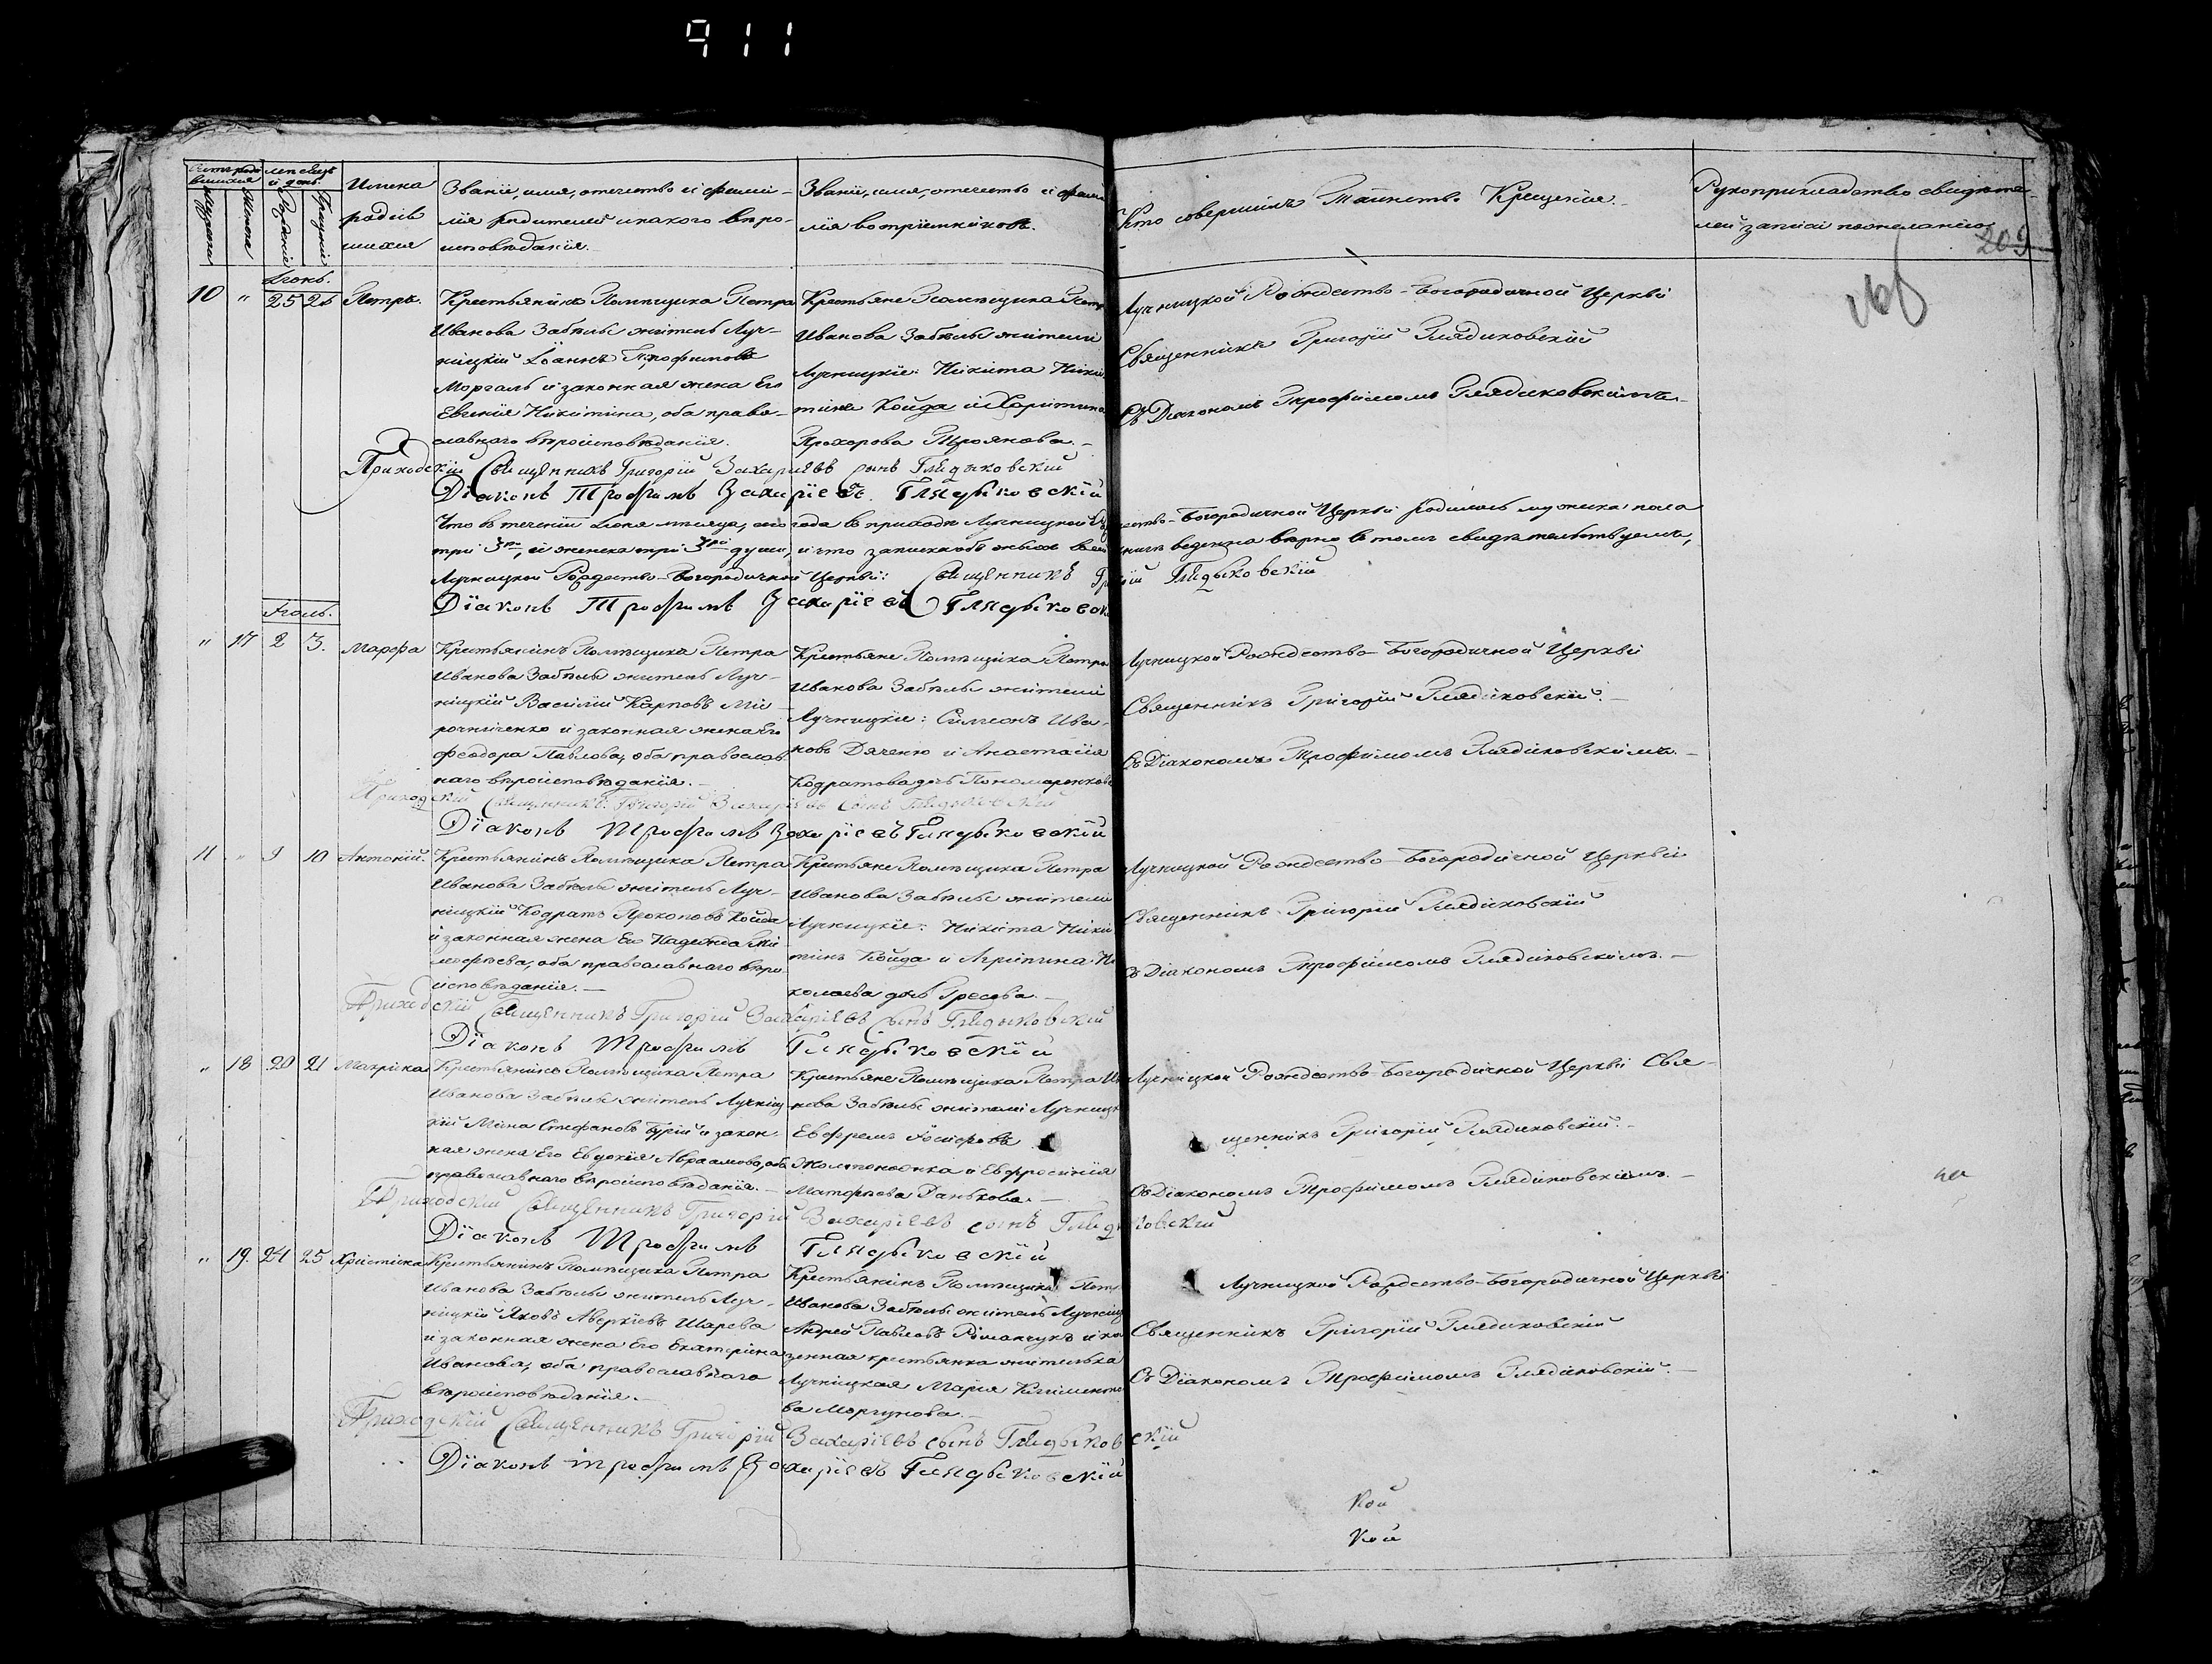 911
Счетъ роди мѣсяцъ
вшихся и день.
Мужеска
Женска
Рожденія
Крещенія
Имена
родив
шихся
Званіе, имя, отечество и фами-
лія родителей и какого вѣро-
исповѣданія.
Званіе, имя, отечество и фами
лія воспріемниковъ.
Кто совершилъ Таинство Крещенія.
Рукоприкладство свидѣте-
лей записи по желанію
209
Іюнь.
10 " 25 26 Петръ.
Крестьянинъ Помѣщика Петра
Иванова Забѣлы житель Луч-
ницкій Іоаннъ Трофимовъ
Моргаль и законная жена Его
Евгенія Никитина, оба право-
славнаго вѣроисповѣданія.
Крестьяне Помѣщика Петра
Иванова Забѣлы жители
Лучницкіе: Никита Ники
тинъ Койда и Харитина
Прохорова Троянова.
Лучницкой Рождество-Богородичной Церкви
Священникъ Григорій Глядиковскій
Съ Діакономъ Трофимомъ Глядиковскимъ.
Приходскій Священникъ Григорій Захаріевъ сынъ Глядыковскій
Діаконъ Трофимъ Захаріевъ Глядыковскій
Что въ теченіи Іюня мѣсяца, сего года въ приходѣ Лучницкой Рождество-Богородичной Церкви родилось мужеска пола
три 3ри, и женска три 3ри души, и что записка объ оныхъ въ сей книгѣ ведена вѣрно въ томъ свидѣтельствуемъ,
Лучницкой Рождество-Богородичной Церкви: Священникъ Григорій Глядыковскій
Діаконъ Трофимъ Захаріевъ Глядыковск
Іюль.
" 17 2 3. Марфа
Крестьянинъ Помѣщика Петра
Иванова Забѣлы житель Луч-
ницкій Василій Карповъ Ми-
рочниченко и законная жена Его
Феодора Павлова, оба православ
наго вѣроисповѣданія.
Крестьяне Помѣщика Петра
Иванова Забѣлы жители
Лучницкіе: Симеонъ Ива-
новъ Дяченко и Анастасія
Кодратова дочь Пономаренкова
Лучницкой Рождество-Богородичной Церкви
Священникъ Григорій Глядиковскій.
Съ Діакономъ Трофимомъ Глядиковскимъ.
Приходскій Священникъ Григорій Захаріевъ сынъ Глядыковскій
Діаконъ Трофимъ Захаріевъ Глядыковскій
11 " 9 10 Антоній.
Крестьянинъ Помѣщика Петра
Иванова Забѣлы житель Луч-
ницкій Кодратъ Прокоповъ Койда
и законная жена Его Надежда Ти
мофѣева, оба православнаго вѣро
исповѣданія.
Крестьяне Помѣщика Петра
Иванова Забѣлы жители
Лучницкіе: Никита Ники
тинъ Койда и Агрипина Ни
колаева дочь
Лучницкой Рождество-Богородичной Церкви
Священникъ Григорій Глядиковскій
Съ Діакономъ Трофимомъ Глядиковскимъ.
Приходскій Священникъ Григорій Захаріевъ Сынъ Глядыковскій
Діаконъ Трофимъ Глядыковскій
" 18 20 21 Макрина
Крестьянинъ Помѣщика Петра
Иванова Забѣлы житель Лучниц
кій Мина Стефановъ и закон-
ная жена Его Евдокія Авраамова, оба
православнаго вѣроисповѣданія.
Крестьяне Помѣщика Петра Ива
нова Забѣлы жители Лучницк
Ефремъ Іосифовъ
и Евфросинія
Матфѣева Данькова.
Лучницкой Рождество-Богородичной Церкви Свя-
щенникъ Григорій Глядиковскій.
Съ Діакономъ Трофимомъ Глядиковскимъ.
Приходскій Священникъ Григорій Захаріевъ сынъ Глядыковскій
Діаконъ Трофимъ Глядыковскій
" 19. 24 25 Христина
Крестьянинъ Помѣщика Петра
Иванова Забѣлы житель Луч-
ницкій Яковъ Аверкіевъ Шарева
и законная жена Его Екатерина
Иванова, оба православнаго
вѣроисповѣданія.
Крестьянинъ Помѣщика Петр
Иванова Забѣлы житель Лучниц
Андрей Павловъ Романчукъ и ка
зенная крестьянка жителька
Лучницкая Марія Климентье
ва Моргунова.
Лучницкой Рождество-Богородичной Церкви
Священникъ Григорій Глядиковскій
Съ Діакономъ Трофимомъ Глядиковскій.
Приходскій Священникъ Григорій Захаріевъ сынъ Глядыковскій
Діаконъ Трофимъ Захаріевъ Глядыковскій
Кой
Кой